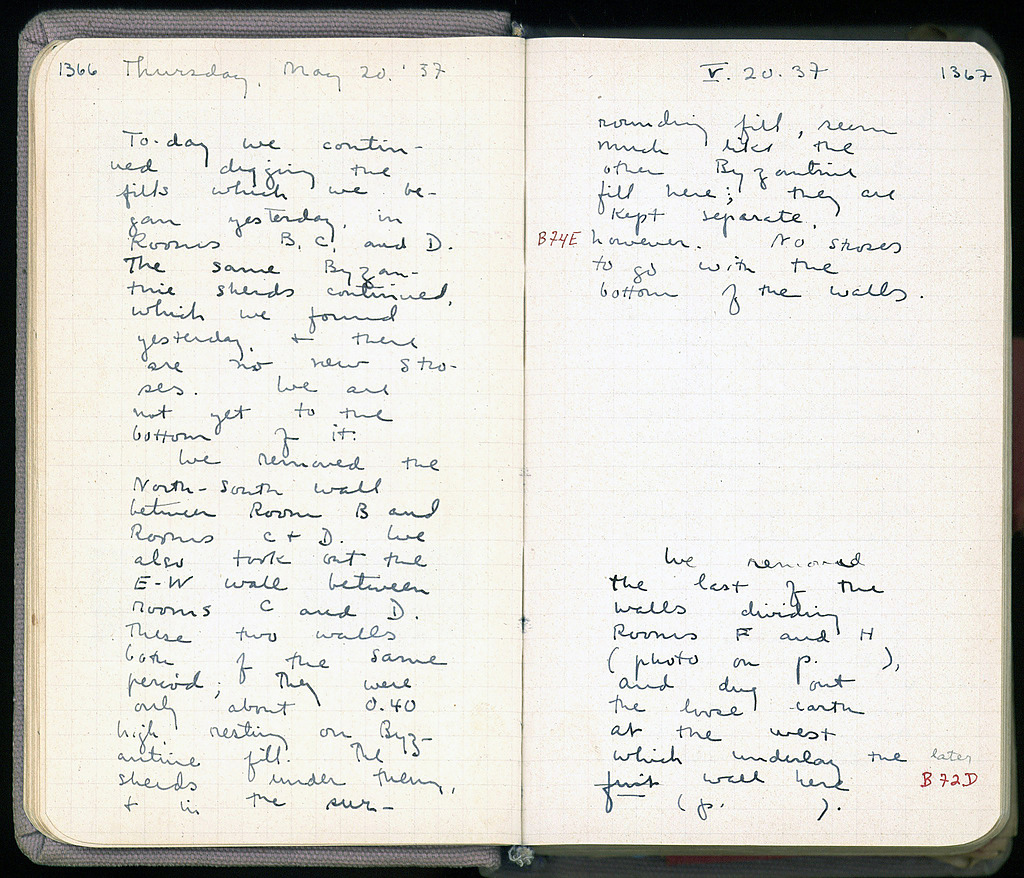 1366 Thursday, May 20. '37
To-day we contin-
ued digging the
fills which we be-
gan yesterday, in
Rooms B, C, and D.
The same Byzan-
tine sherds continued,
which we found
yesterday, & there
are no new stro-
ses. We are
not yet to the
bottom of it.
We removed the
North-South wall
between Room B and
Rooms C & D. We
also took out the
E-W wall between
rooms C and D.
These two walls
both of the same
period; they were
only about 0.40
high, resting on Byz-
antine fill. The
sherds under them,
& in the sur-
V. 20. 37 1367
rounding fill, seem
much like the
other Byzantine
fill here; they are
kept separate,
B74E however. No stroses
to go with the
bottom of the walls.
We removed
the last of the
walls dividing
Rooms F and H
(photo on p. ),
and dug out
the loose earth
at the west
which underlay the later
wall here B72D
(p. ).